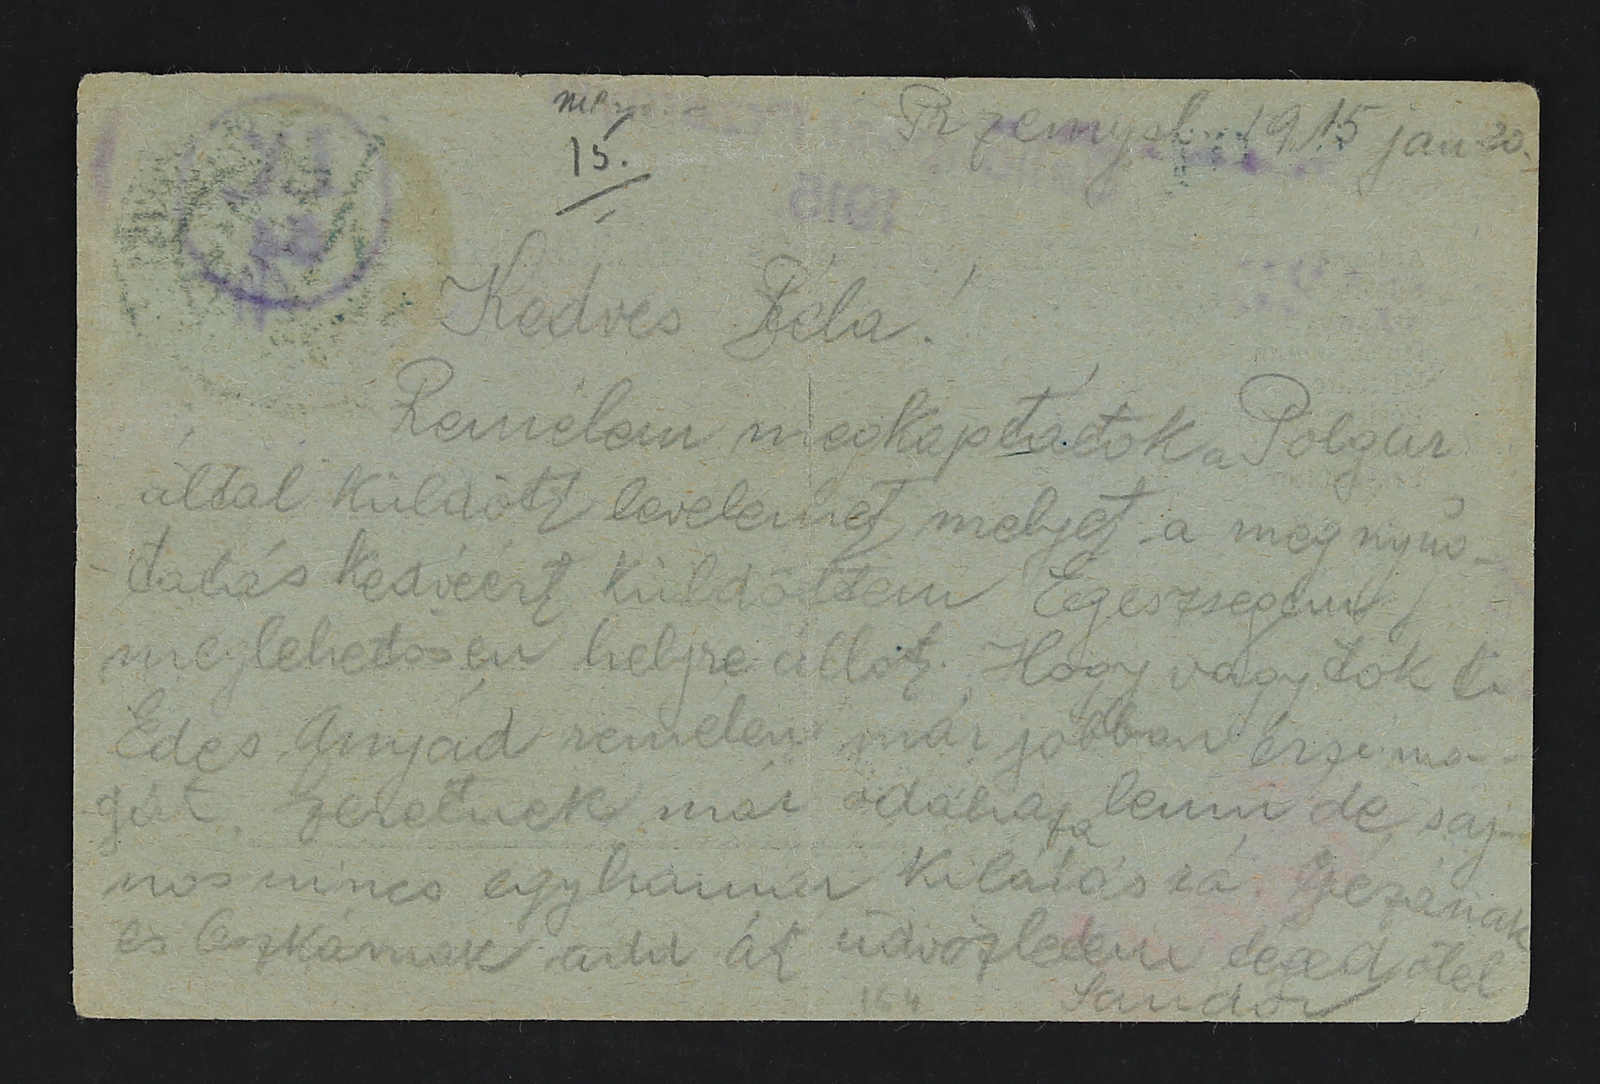 15.
Przemysl 1915 jan 20.
1915
Kedves Béla!
Remélem megkaptátok a Polgár
által küldött levelemet melyet a megnyug-
-tatás kedvéért küldöttem Egészségem
meglehetősen helyre állot. Hogy vagytok ti
Édes Anyád remélem már jobban érzi ma-
gát. Szeretnék már odahaza lenni de saj-
nos nincs egyhamar kilátás rá. Gézának
és Oszkárnak add át üdvözletem téged ölel
Sándor
164